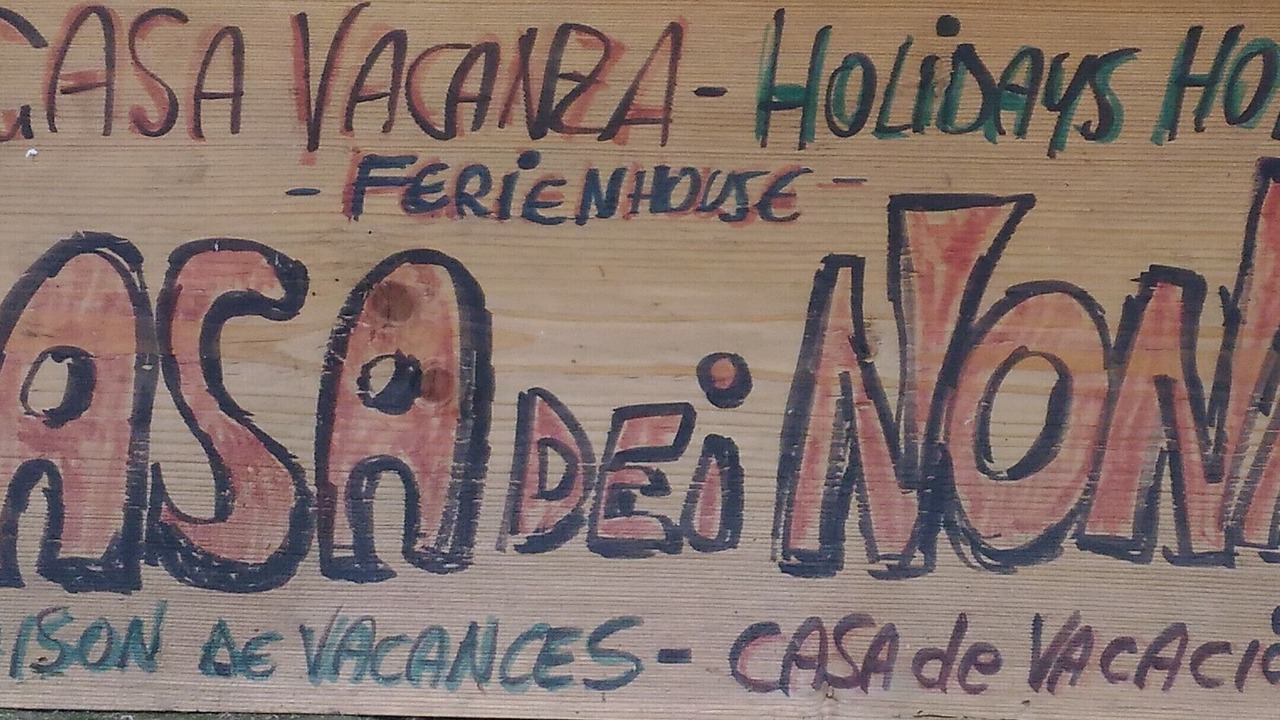 CASA VACANZA - HOLIDAYS HO
- FERIENHOUSE -
ASA DEi NON
ISON DE VACANCES - CASA de VACACI